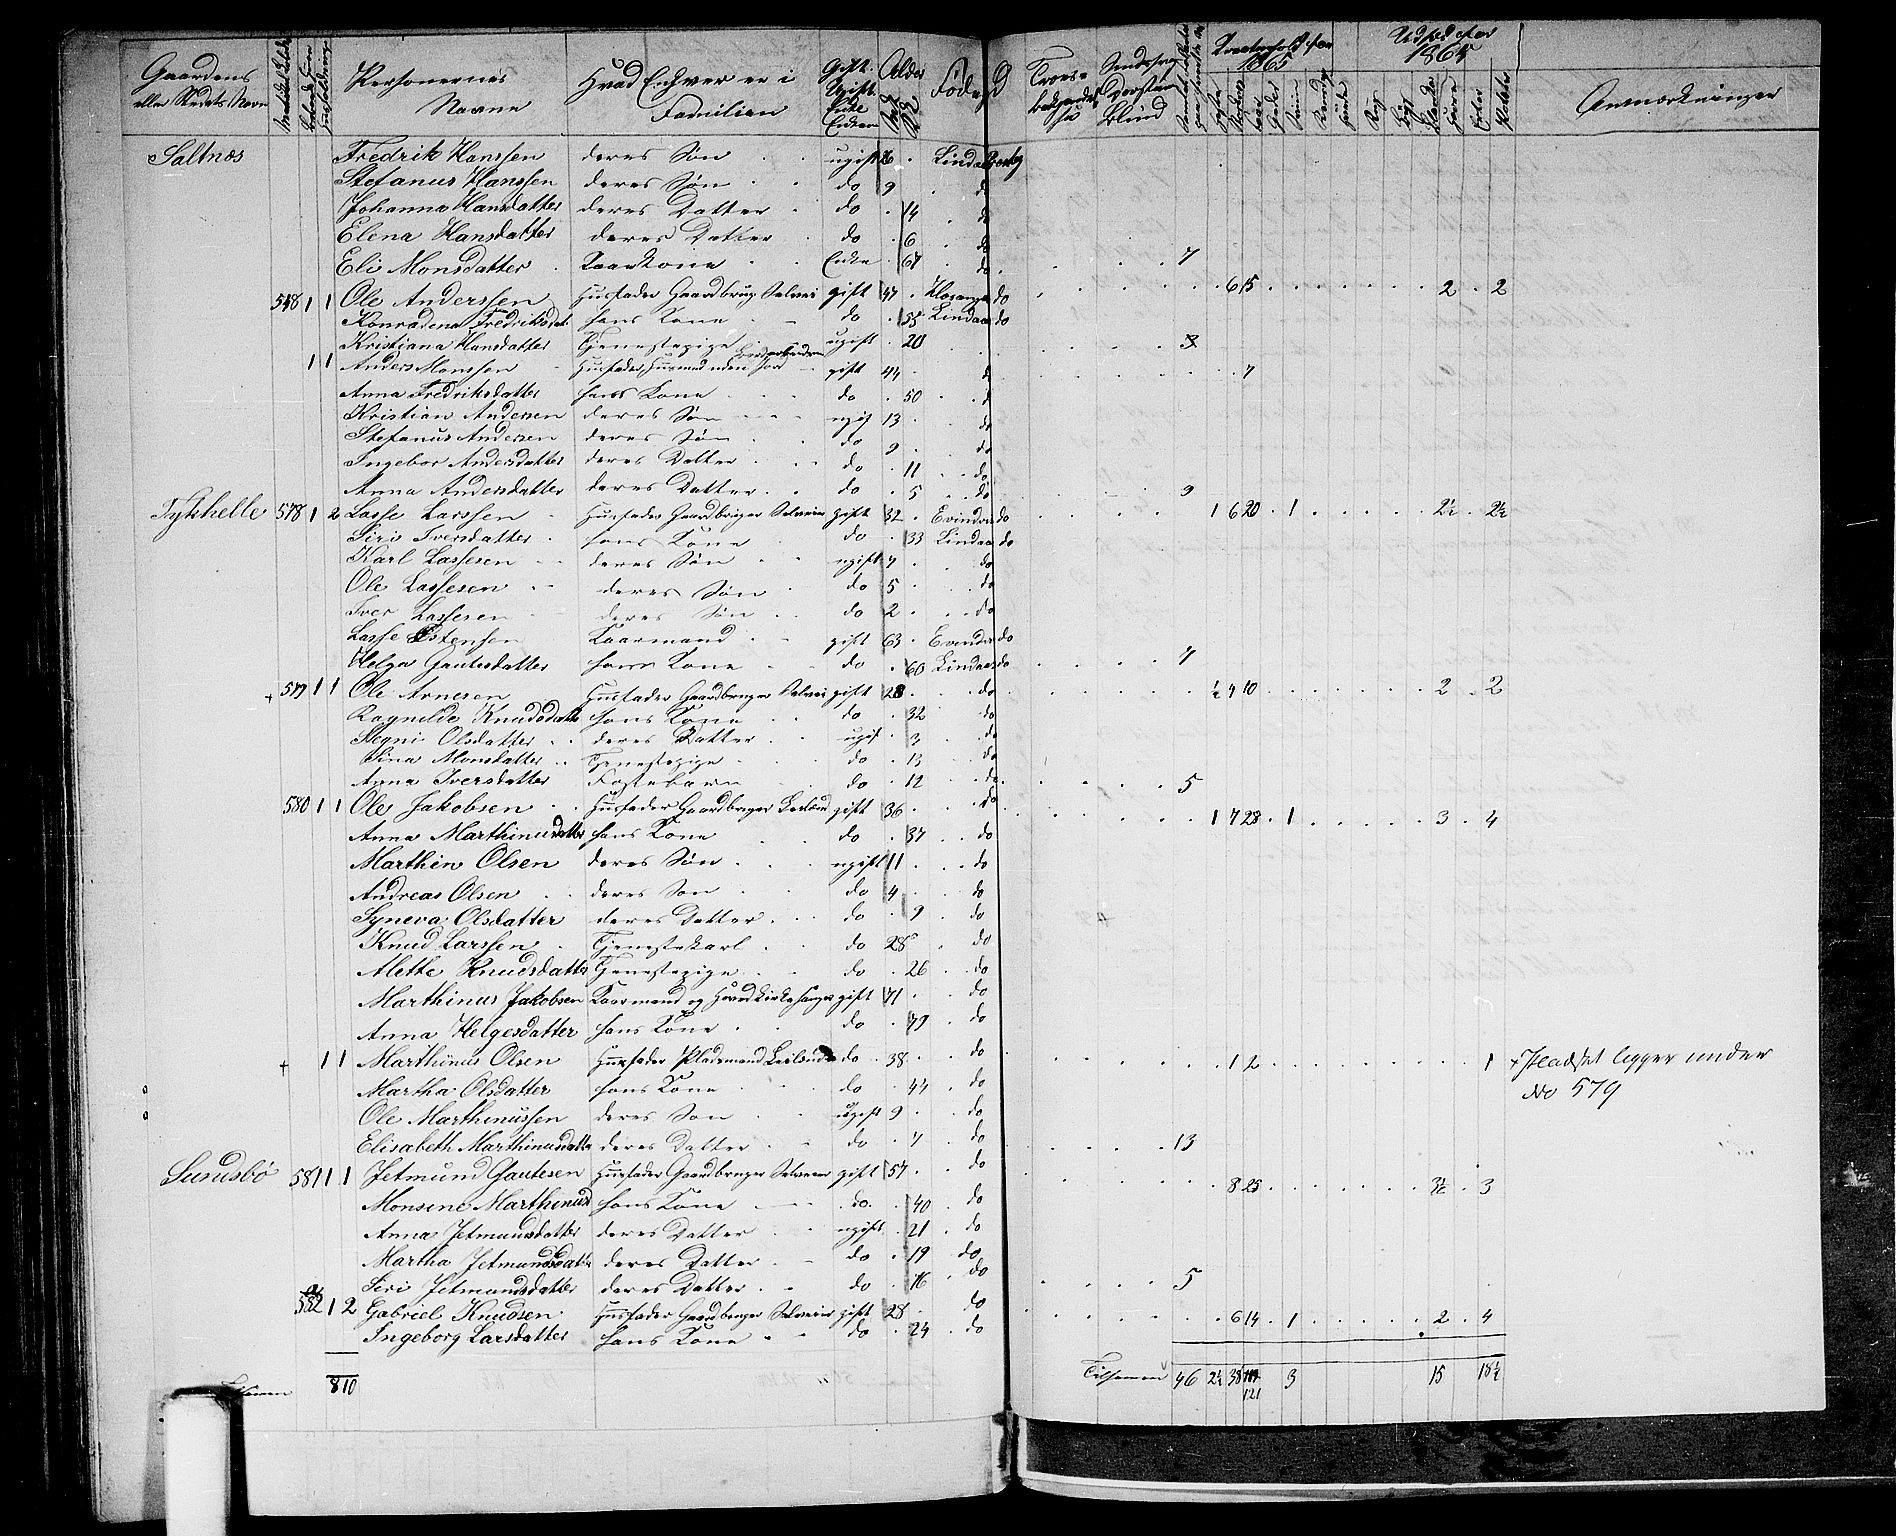 Gaardens eller Stedets Navn | Personernes Navne | Hvad Enhver er i Familien | Gift Ugift Enke Enkem | Alder | Fødested | Troes-bekjendelse | Sindssvag Døvstum Blind | Kreaturhold for 1865 | Udsæd for 1865 | Anmærkninger
Saltnæs Fredrik Hanssen deres Søn ugift 26 Lindaas Presteg
Stefanus Hanssen deres Søn do 9 do
Johanna Hansdatter deres Datter do 14 do
Elena Hansdatter deres Datter do 6 do
Eli Monsdatter Kaarkone Enke 67 do 7
548 1 1 Ole Anderssen Husfader Gaardbrug Selveier gift 47 do 6 15 2 2
Konradena Fredriksdat hans Kone do 55 Lindaas do
Kristiana Hansdatter Tjenestepige ugift 20 3
1 1 Anders Monssen Husfader, Husmand uden Jord gift 44 do 7
Anna Fredriksdatter hans Kone do 50 do
Kristian Andersen deres Søn ugif 13 do
Stefanus Andersen deres Søn do 9 do
Ingebor Andersdatter deres Datter do 11 do
Anna Andersdatter deres Datter do 5 do 9
Tykhelle 578 1 2 Lasse Larssen Husfader Gaardbruger Selveier gift 32 Evindvi do 1 6 20 1 2½ 2½
Siri Iversdatter hans Kone do 33 Lindaas do
Karl Lassesen deres Søn ugift 7 do
Ole Lassesen deres Søn do 5 do
Iver Lassesen deres Søn do 2 do
Lasse Østensen Kaarmand gift 63 Evindvi do
Helga Gautesdatter hans Kone do 60 Lindaas do 7
+ 579 1 1 Ole Arnesen Husfader Gaardbruger Selvei gift 28 do ½ 4 10 2 2
Ragnilde Knudsdatte hans Kone do 32 do
Stegni Olsdatter deres Datter ugif 3 do
Sina Monsdatter Tjenestepige do 13 do
Anna Iversdatter Fostebarn do 12 do 5
580 1 1 Ole Jakobsen Husfader Gaardbruger Leilænd gift 36 do 1 7 28 1 3 4
Anna Marthinusdatter hans Kone do 37 do
Marthin Olsen deres Søn ugift 11 do
Andreas Olsen deres Søn do 4 do
Syneva Olsdatter deres Datter do 9 do
Knud Larssen Tjenestekarl do 28 do
Alette Knudsdatter Tjenestepige do 26 do
Marthinus Jakobsen Kaarmand og Hoved Kirkesanger gift 71 do
Anna Helgesdatter hans Kone do 79 do
+ 1 1 Marthinus Olsen Husfader Pladsmand Leilænder do 38 do 1 2 1 + Pladset ligger under
Martha Olsdatter hans Kone do 44 do No 579
Ole Marthinussen deres Søn ugift 9 do
Elisabeth Marthinusdatte deres Datter do 7 do 13
Sundsbø 581 1 1 Jetmund Gautesen Husfader Gaardbruger Selveier gift 57 do 8 25 3½ 3
Monsene Marthinusd hans Kone do 40 do
Anna Jetmundsdatter deres Datter ugift 21 do
Martha Jetmundsdatte deres Datter do 19 do
Siri Jetmundsdatter deres Datter do 16 do 5
582 1 2 Gabriel Knudsen Husfader Gaardbruger Selveier gift 28 do 6 14 1 2 4
Ingeborg Larsdatter hans Kone do 24 do
8 10 Tilsammen 46 2½ 38 121 3 15 18½